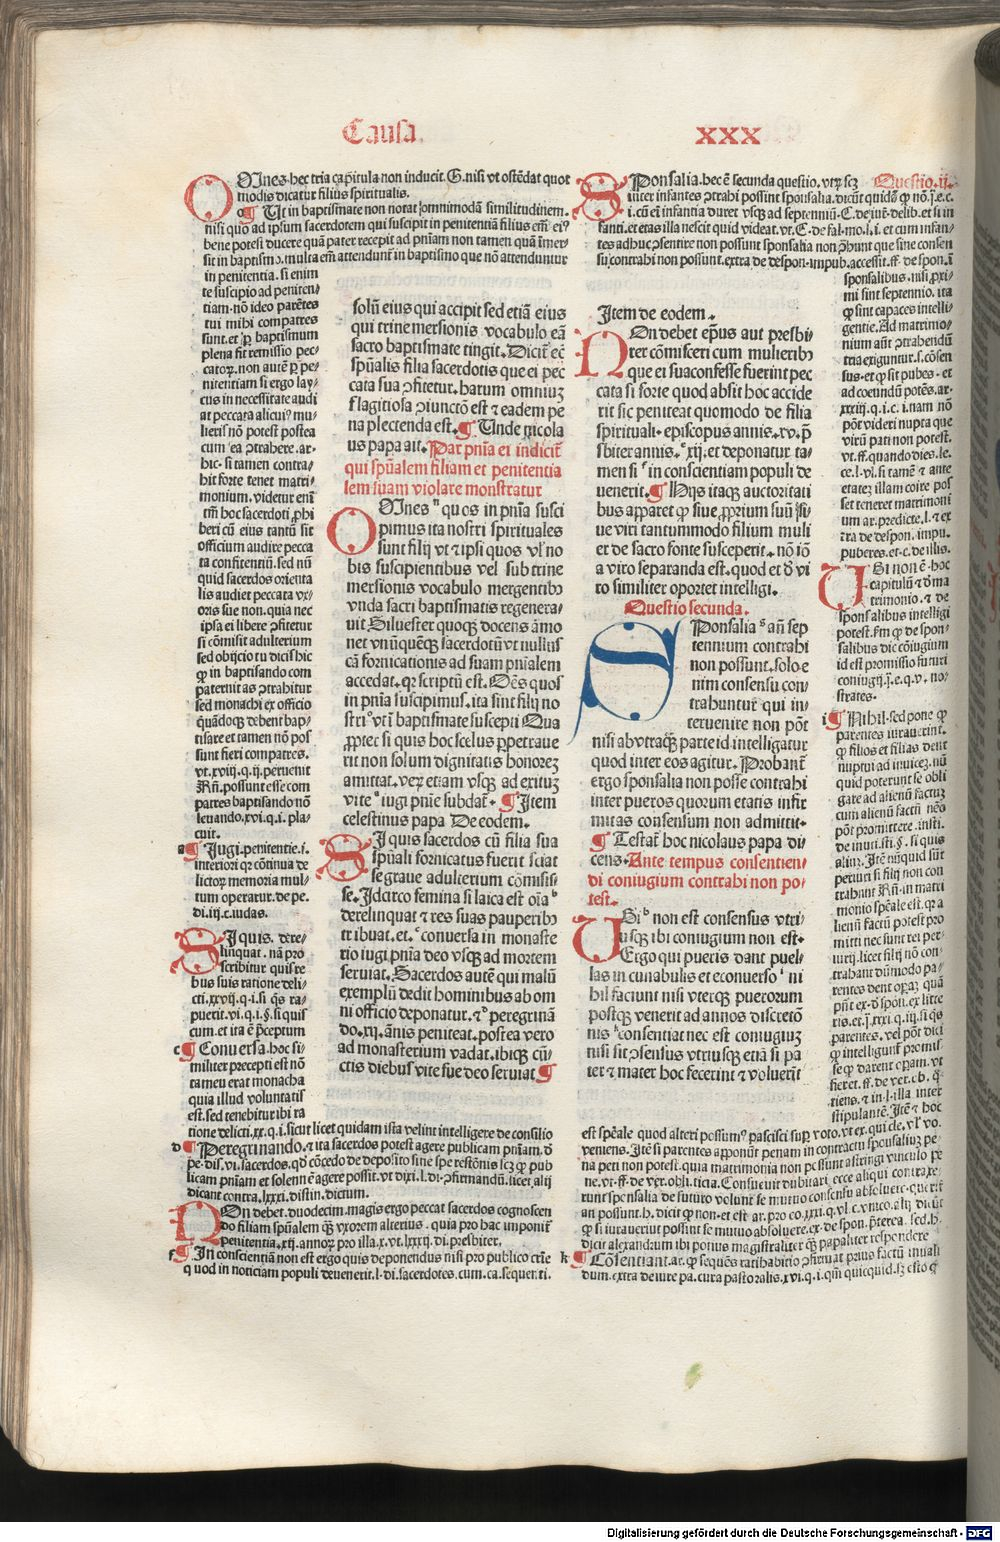 Causa.
XXX
OMnes. hec tria capitula non inducit. G. nisi vt ostēdat quot
modis dicatur filius spiritualis.
¶ Ut in baptismate non notat omnimodā similitudinem.
nisi quo ad ipsum sacerdotem qui suscipit in penitentiā filius em̄ eiꝰ
bene potest ducere quā pater recepit ad pn̄iam non tamen quā īmer
sit in baptismo. multa em̄ attendunt̄ in baptismo que nō attenduntur
in penitentia. si enim
te suscipio ad peniten
tiam. nō ideo parētes
tui mihi compatres
sunt. et ꝑ baptismum
plena fit remissio pec
catoꝝ. non autē ꝑ pe
nitentiam si ergo lay
cus in necessitate audi
at peccata alicuiꝰ mu
lieris nō potest postea
cum ea ꝯtrahere. ar.
hic. si tamen contra
hit forte tenet matri
monium. videtur enī
tm̄ hoc sacerdoti ꝓhi
beri cū eius tantū sit
officium audire pecca
ta confitentiū. sed nū
quid sacerdos orienta
lis audiet peccata vx
oris sue non. quia nec
ipsa ei libere ꝯfitetur
si cōmisit adulterium
sed obijcio tu dicis hic
ꝙ in baptisando com
paternitas ꝯtrahitur
sed monachi ex officio
quādoqꝫ debent bap
tisare et tamen nō pos
sunt fieri compatres.
vt. xviij. q. ij. peruenit
Rñ. possunt esse com
patres baptisando nō
leuando. xvi. q. i. pla
cuit.
a ¶ Jugi. penitentie. i.
interiori qꝛ cōtinua de
lictoꝝ memoria mul
tum operatur. de pe.
di. iij. c. iudas.
SI quis. dere
linquat. nā pro
scribitur quis re
bus suis ratione deli
cti. xxvij. q. i. si qͥs ra
puerit. vi. q. i. §. si quis
cum. et ita ē p̄ceptum
c ¶ Conuersa. hoc si
militer precepti est nō
tameu erat monacha
quia illud voluntatis
est. sed tenebitur ibi ra
tione delicti. xx. q. i. sicut licet quidam ista velint intelligere de consilio
d ¶ Peregrinando. ⁊ ita sacerdos potest agere publicam pn̄iam. ꝺ
pe. dis. vi. sacerdos. qd̄ cōcedo de deposito sine spe restōnis scꝫ ꝙ pub
licam pn̄iam et solenē agere possit. vt dixi. l. di. ꝯfirmandū. licet alij
dicant contra. lxxxi. distin. dictum.
NOn debet. duodecim. magis ergo peccat sacerdos cognoscen
do filiam spūalem qꝫ vxorem alterius. quia pro hac imponit̄
penitentia. xij. annoꝝ pro illa. x. vt. lxxxij. di. presbiter.
f ¶ In conscientiā non est ergo quis deponendus nisi pro publico crīe
quod in noticiam populi deuenerit. l. di. sacerdotes. cum. ca. sequen̄ti.
solū eius qui accipit sed etiā eius
qui trine mersionis vocabulo eā
sacro baptismate tingit. Dicit̄ eē
spūalis filia sacerdotis que ei pec
cata sua ꝯfitetur. harum omniuꝫ
flagitiosa ꝯiunctō est ⁊ eadem pe
na plectenda est. ¶ Unde nicola
us papa ait. Par pn̄ia ei indicit̄
qui spūalem filiam et penitentia
lem suam violare monstratur
OMnes quos in pn̄ia susci
pimus ita nostri spirituales
sunt filij vt ⁊ ipsi quos vl̄ no
bis suscipientibus vel sub trine
mersionis vocabulo mergentibꝰ
vnda sacri baptismatis regenera
uit Siluester quoqꝫ docens āmo
net vnūquēqꝫ sacerdotū vt nullus
cā fornicationis ad suam pn̄ialem
accedat. qꝛ scriptū est. Oēs quos
in pn̄ia suscipimus. ita sunt filij no
stri vt ī baptismate suscepti Qua
ꝓpter si quis hoc scelus ꝑpetraue
rit non solum dignitatis honorez
amittat. veꝝ etiam vsqꝫ ad exituꝫ
vite iugi pn̄ie subdat̄. ¶ Item
celestinus papa De eodem.
SI quis sacerdos cū filia sua
spūali fornicatus fuerit sciat
se graue adulterium cōmisis
se. Idcirco femina si laica est oīa
derelinquat ⁊ res suas pauperibꝰ
tribuat. et conuersa in monaste
rio iugi pn̄ia deo vsqꝫ ad mortem
seruiat. Sacerdos autē qui malū
exemplū dedit hominibus ab om
ni officio deponatur. ⁊ peregrinā
do. xij. ānis peniteat. postea vero
ad monasterium vadat. ibiqꝫ cū
ctis diebus vite sue deo seruiat ¶
Item de eodem.
NOn debet ep̄us aut presbi
ter cōmisceri cum mulieribꝰ
que ei sua confesse fuerint pec
cata si forte quod absit hoc accide
rit sic peniteat quomodo de filia
spirituali. episcopus annis. xv. p̄
sbiter annis. xij. et deponatur ta
men si in conscientiam populi de
uenerit. ¶ Hijs itaqꝫ auctoritati
bus apparet ꝙ siue ꝓprium suū si
ue viri tantummodo filium muli
er de sacro fonte susceperit. nō iō
a viro separanda est. quod et ꝺ vi
ro similiter oportet intelligi.
Questio secunda.
SPonsalia an̄ sep
tennium contrahi
non possunt. solo e
nim consensu con
trahuntur̄ qui in
teruenire non pōt
nisi ab vtraqꝫ parte id intelligatur
quod inter eos agitur. Probant̄
ergo sponsalia non posse contrahi
inter pueros quorum etatis infir
mitas consensum non admittit.
¶ Testat̄ hoc nicolaus papa di
cens. Ante tempus consentien
di coniugium contrahi non po
test.
UBi non est consensus vtri
usqꝫ ibi coniugium non est.
Ergo qui pueris dant puel
las in cunabulis et econuerso ni
hil faciunt nisi vterqꝫ puerorum
postqꝫ venerit ad annos discretō
nis consentiat nec est coniugiuꝫ
nisi sit ꝯsensus vtriusqꝫ etiā si pa
ter ⁊ mater hoc fecerint ⁊ voluerīt
SPonsalia. hec ē secunda questio. vtꝝ scꝫ Questio. ij.
inter infantes ꝯtrahi possint sponsalia. dicūt quidā ꝙ nō. j. e. c.
i. cū ē infantia duret vsqꝫ ad septenniū. C. de iur̄. delib. et si in
fanti. et etas illa nescit quid videat. vt. C. de fal. mo. l. i. et cum infan
tes adhuc ꝯsentire non possunt sponsalia non ꝯhunt que sine consen
su contrahi non possunt. extra de despon. impub. accessit. ff. de spon. ī
sponsalibus. nisi ꝓxi
mi sint septennio. ita
ꝙ sint capaces intelli
gentie. Ad matrimo
nium aūt ꝯtrahendū
tria exiguntur. s. cōsen
sus. et ꝙ sit pubes. et
ad coeundū potēs. ar.
xxxiij. q. i. c. i. nam nō
pōt videri nupta que
virū pati non potest.
vt. ff. quando dies. le.
ce. l. vl. si tamē ⁊ ante
etateꝫ illam coire pos
set teneret matrimoni
um ar. predicte. l. ⁊ ex
tra de despon. impu.
puberes. et. c. de illis.
UBi non ē. hoc
capitulū ⁊ ꝺ ma
trimonio. ⁊ de
sponsalibus intelligi
potest. fm ꝙ de spon
salibus dic cōiugium
id est promissio futuri
coniugij. j. e. q. v. no
strates.
i ¶ Nihil. sed pone ꝙ
parentes iurauerint.
ꝙ filios et filias dent
nuptui ad inuicē. nū
quid poterunt se obli
gate ad alienū factuꝫ
cum alienū factuꝫ nēo
pōt promittere. insti.
de inuti. sti. §. si quis
aliuꝫ. Itē nūquid sūt
periuri si filij non con
trahant Rñ. in matri
monio spēale est. ꝙ a
lienū factū potest pro
mitti nec sunt rei per
iurij. licet filij nō con
trahant dūmodo pa
rentes dent opaꝫ quā
pn̄t ex. ꝺ spon. ex litte
ris. et. j. xxxi. q. iij. si qͥs
parentes. vel pōt dici
ꝙ intelligunt̄ promis
se ꝙ darent operam. vt
fieret. ff. de ver. ob. q̄
riens. ⁊ in. l. illa inter
stipulantē. Itē ⁊ hoc
est spēale quod alteri possumꝰ pascisci suꝑ voto. vt ex. qui cle. vl̄ vo.
veniens. Itē si parentes apponūt penam in contractu sponsaliuꝫ pe
na peti non potest. quia matrimonia non possunt astringi vinculo pe
ne. vt. ff. de veꝝ. obli. titia. Consueuit dubitari. ecce aliqui contraxe
runt sponsalia de futuro volunt se mutuo consensu absoluere. querit̄
an possunt. h. dicit ꝙ non. et est ar. pro eo. xxxi. q. vl. c. vnico. alij dicūt
ꝙ si iurauerint possunt se mutuo absoluere. ex. de spon. p̄terea. sed. h.
dicit alexandrum ibi potius magistraliter qꝫ papaliter respondere
k ¶ Cōsentiant. ar. ꝙ sequēs ratihabitio ꝯfirmat prius factū inuali
dum. extra de iure pa. cura pastoralis. xvi. q. i. qm̄ quicquid. sꝫ esto ꝙ
Digitalisierung gefördert durch die Deutsche Forschungsgemeinschaft - DFG